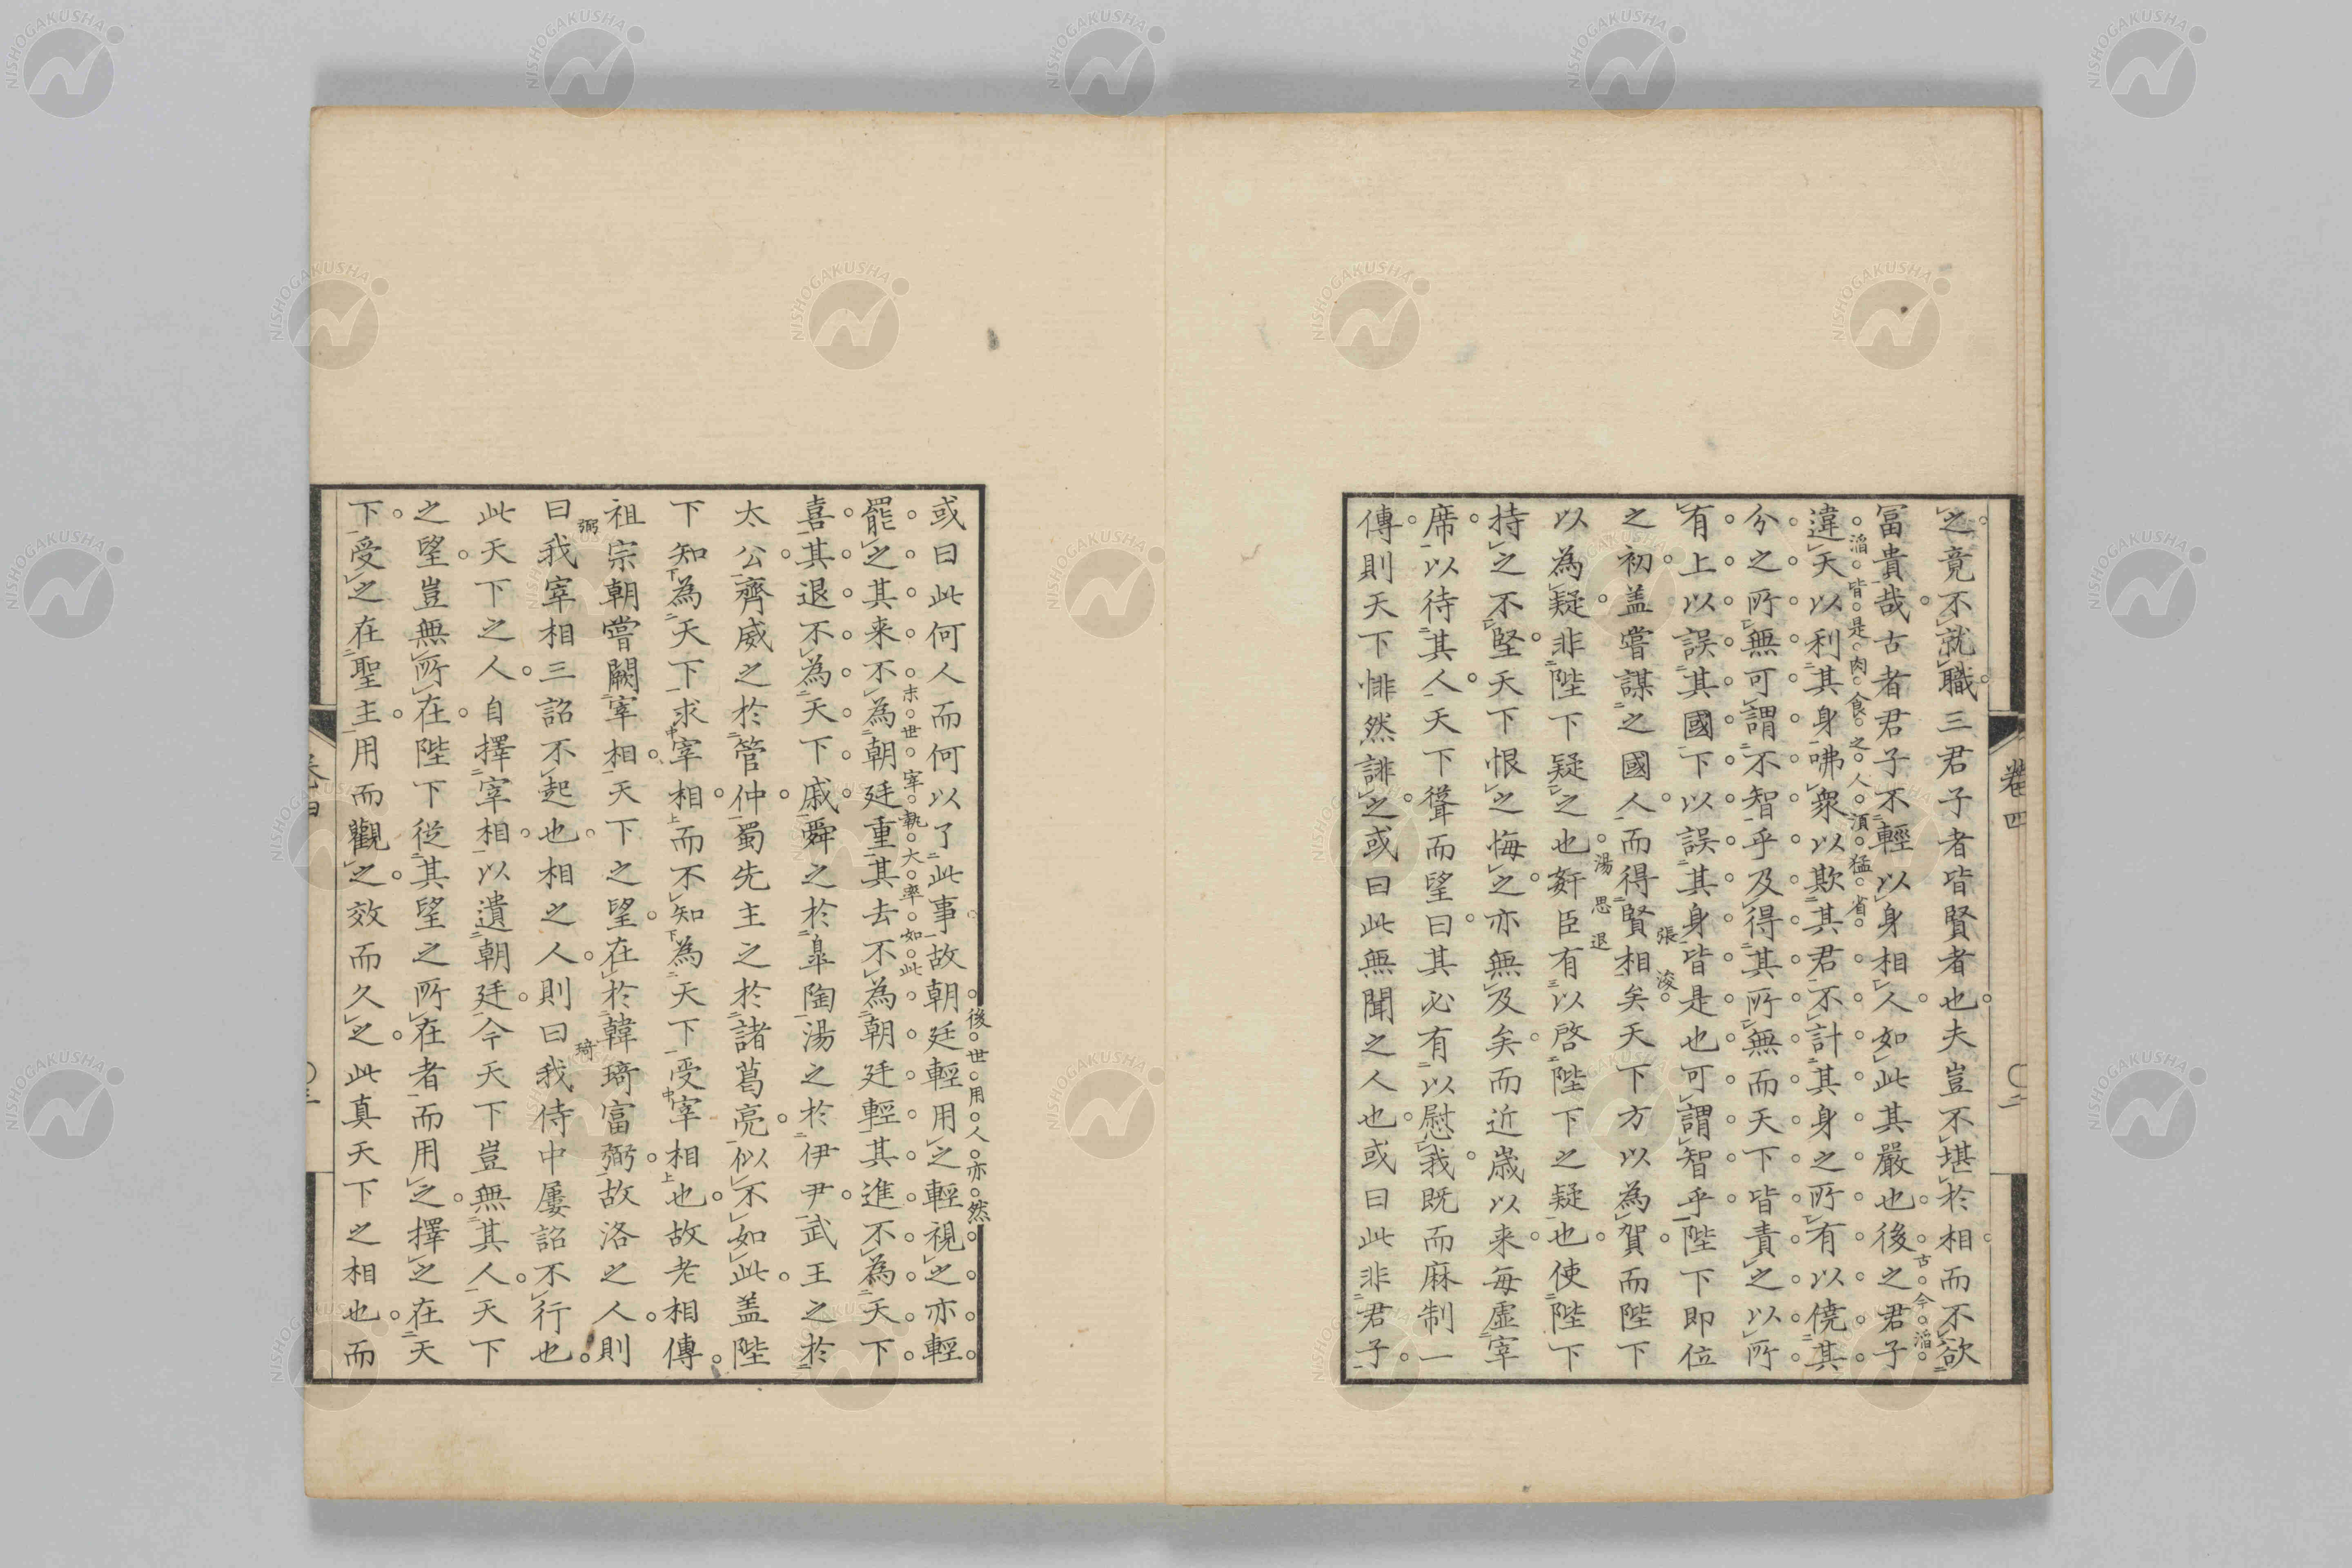 之竟不就職三君子者皆賢者也夫豈不堪於相而不欲
冨貴哉古者君子不輕以身相人如此其嚴也後之君子
古今滔
滔皆是肉食之人須猛省
違天以利其身咈衆以欺其君不計其身之所有以僥其
分之所無可謂不智乎及得其所無而天下皆責之以所
有上以誤其國下以誤其身皆是也可謂智乎陛下即位
之初盖嘗謀之國人而得賢相矣天下方以為賀而陛下
張浚
以為疑非陛下疑之也姧臣有以啓陛下之疑也使陛下
湯思退
持之不堅天下恨之悔之亦無及矣而近歳以来毎虚宰
席以待其人天下聳而望曰其必有以慰我既而麻制一
傳則天下悱然誹之或曰此無聞之人也或曰此非君子
卷四
〇二
或曰此何人而何以了此事故朝廷輕用之輕視之亦輕
後世用人亦然
罷之其来不為朝廷重其去不為朝廷輕其進不為天下
末世宰執大率如此
喜其退不為天下戚舜之於皐陶湯之於伊尹武王之於
太公齊威之於管仲蜀先主之於諸葛亮似不如此盖陛
下知為天下求宰相而不知為天下受宰相也故老相傳
祖宗朝嘗闕宰相天下之望在於韓琦富弼故洛之人則
曰我宰相三詔不起也相之人則曰我侍中屢詔不行也
弼
琦
此天下之人自擇宰相以遺朝廷今天下豈無其人天下
之望豈無所在陛下從其望之所在者而用之擇之在天
下受之在聖主用而觀之效而久之此真天下之相也而
卷四
〇三
NISHOGAKUSHA